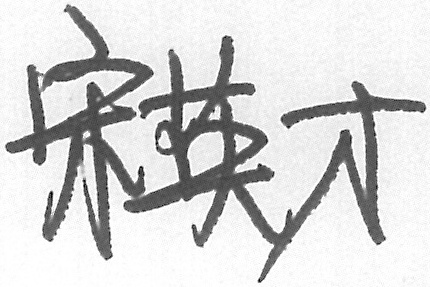 宋英才